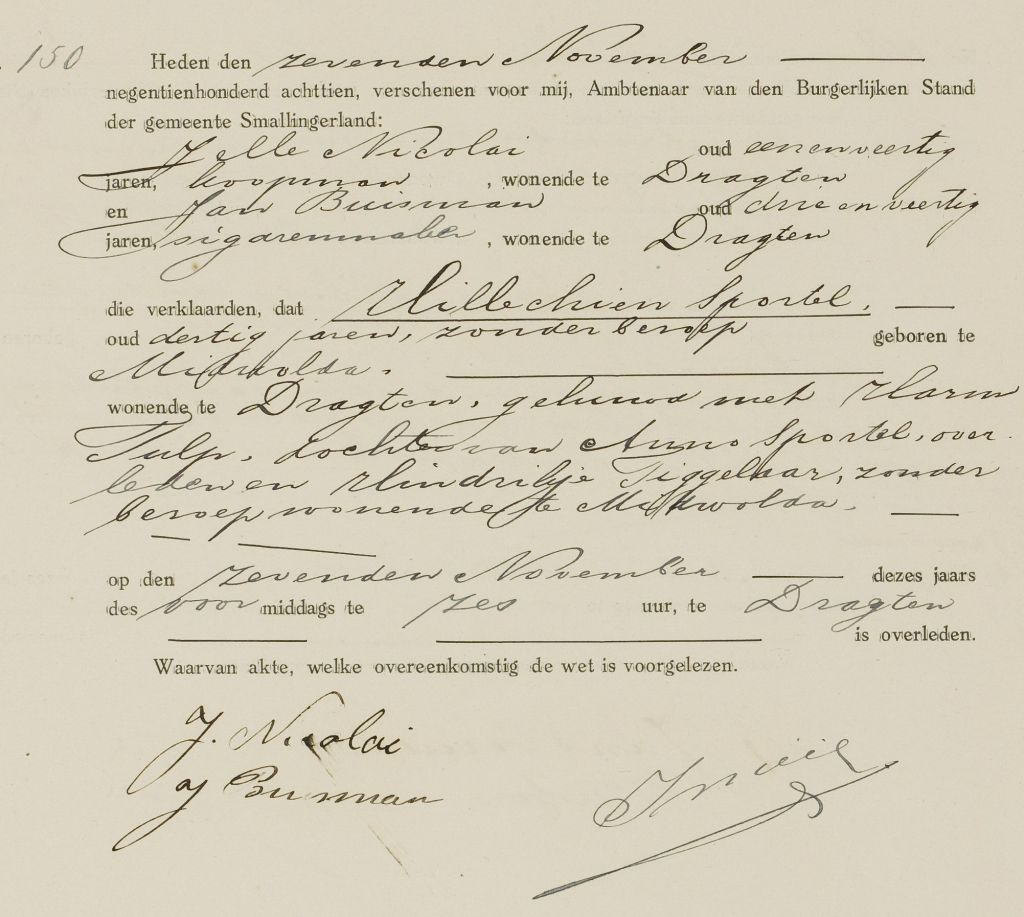 150
Heden den zevenden November
negentienhonderd achttien, verschenen voor mij, Ambtenaar van den Burgerlijken Stand
der gemeente Smallingerland:
Jelle Nicolai oud eenenveertig
jaren, koopman, wonende te Dragten
en Jan Buisman oud drieenveertig
jaren, sigarenmaker, wonende te Dragten
die verklaarden, dat Hillechien Sportel,
oud dertig jaren, zonder beroep geboren te
Midwolda.
wonende te Dragten, gehuwd met Harm
Tulp, dochter van Anno Sportel, over
leden en Hindrikje Tiggelaar, zonder
beroep wonende te Midwolda.
op den zevenden November dezes jaars
des voormiddags te zes uur, te Dragten
is overleden.
Waarvan akte, welke overeenkomstig de wet is voorgelezen.
J. Nicolai
J Buisman